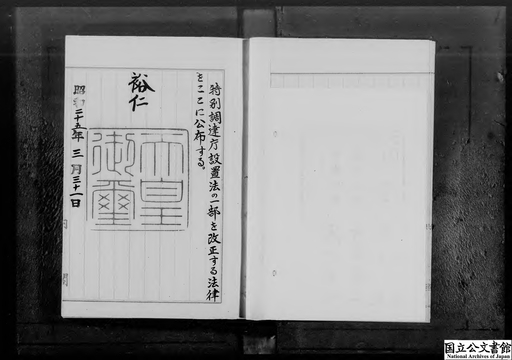 特別調達庁設置法の一部を改正する法律
をここに公布する。
裕仁
天皇
御璽
昭和二十五年三月三十一日
国立公文書館
National Archives of Japan